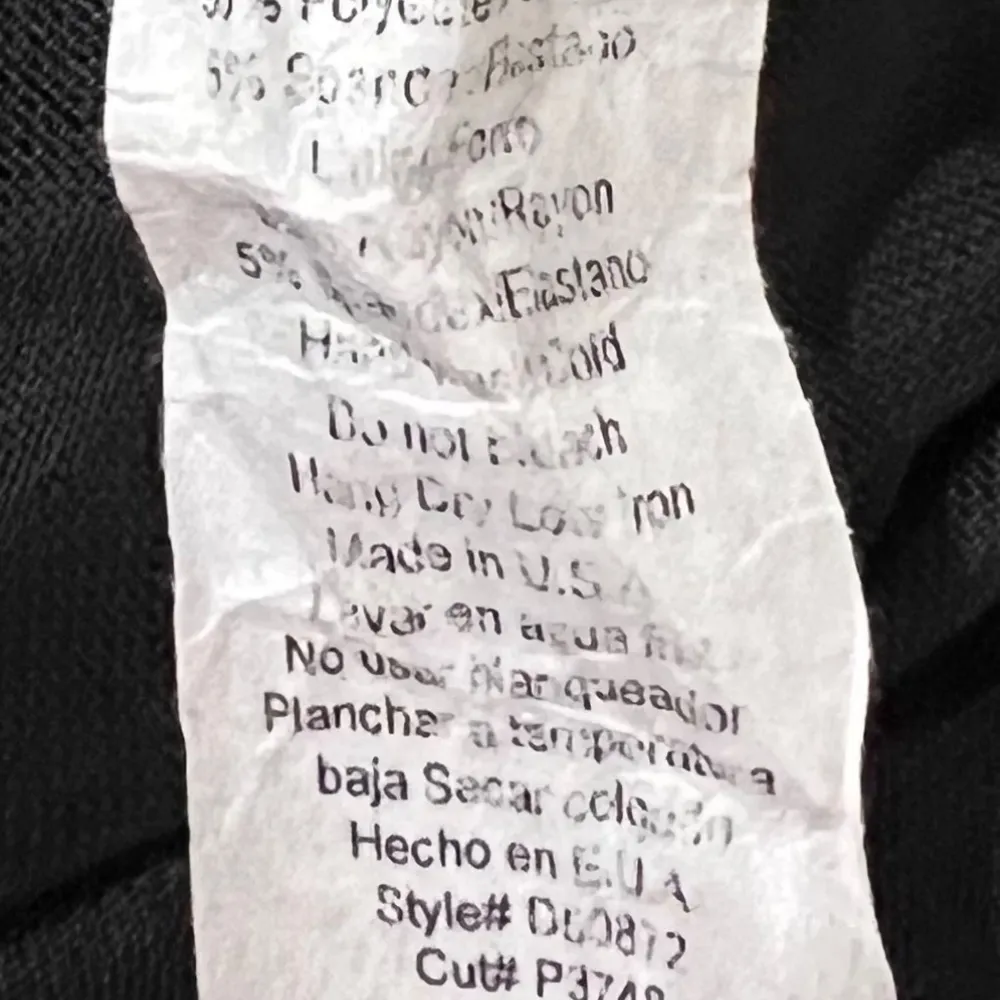 % Polyester
5% Spandex/Elastano
Lining/Forro
Rayon/Rayon
5% Spandex/Elastano
Hand Wash Cold
Do not bleach
Hang Dry Low Iron
Made in U.S.A
Lavar en agua fria
No usar blanqueador
Planchar a temperatura
baja Secar colgado
Hecho en E.U.A
Style#
Cut#